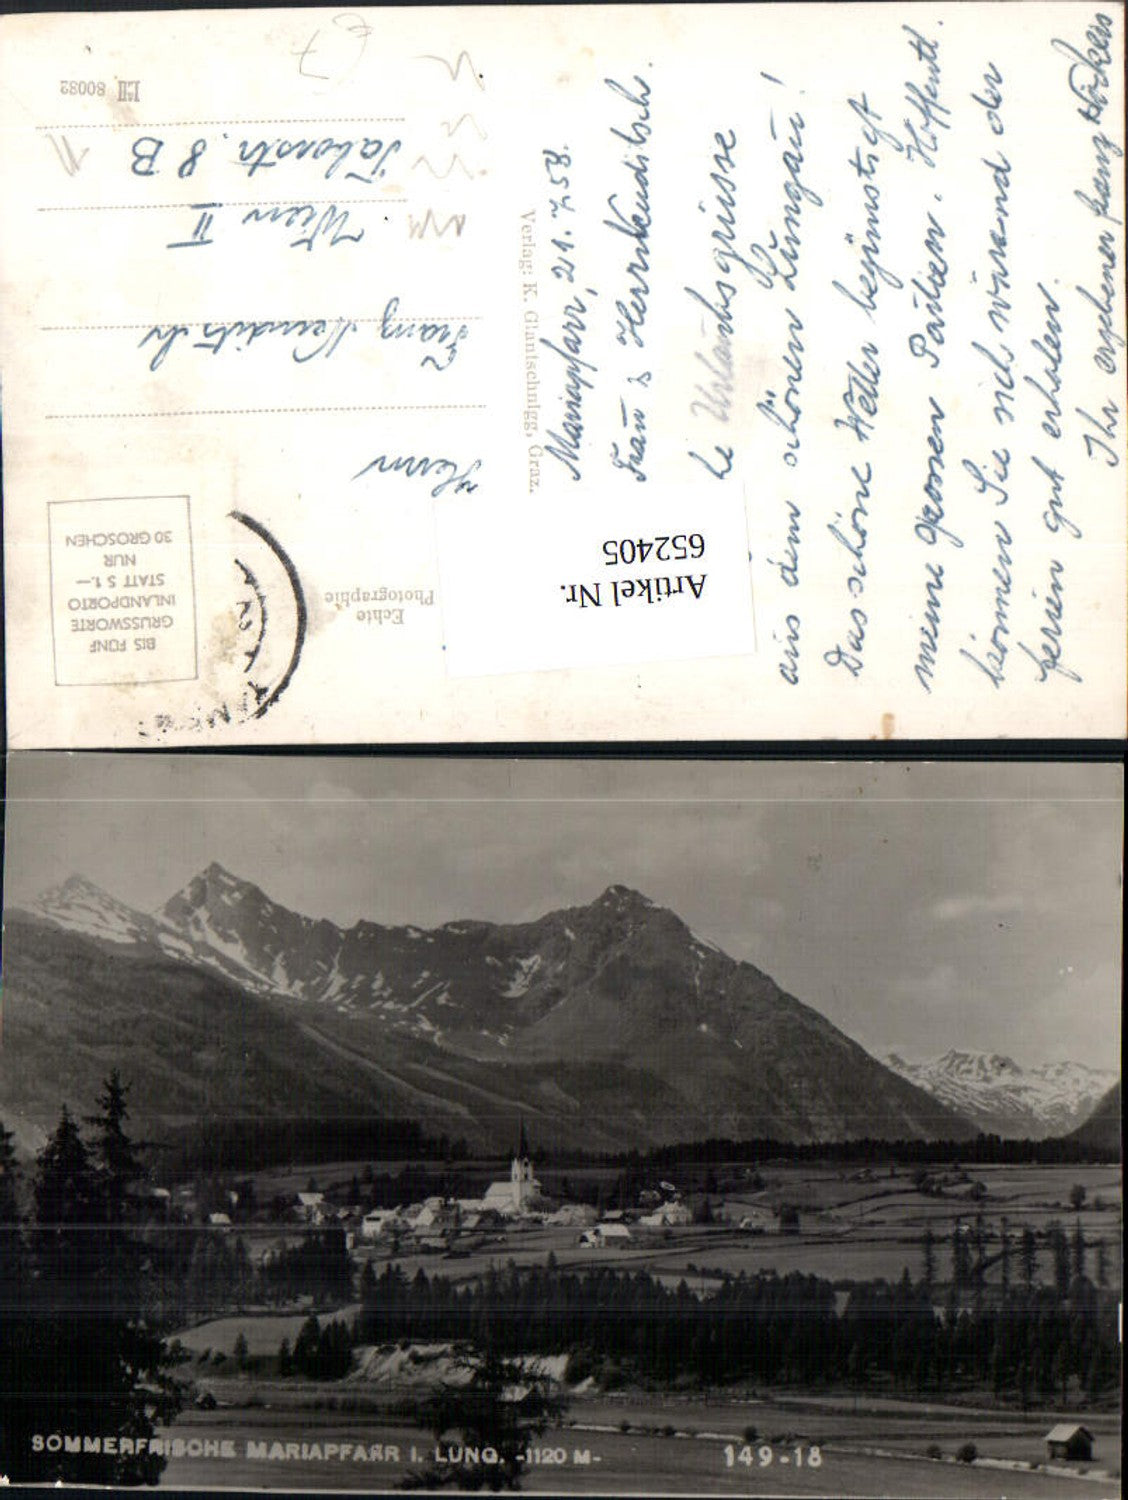 Mariapfarr, 21.7.58.
Frau & Herr Kudilsch.
Le Urlaubsgrüsse
aus dem schönen Lungau!
Das schöne Wetter begünstigt
meine grossen Partien. Hoffentl.
können Sie sich während der
ferien gut erholen.
Ihr ergebener franz
Verlag: K. Glantschnigg, Graz.
Echte
Photographie
BIS FÜNF
GRUSSWORTE
INLANDPORTO
STATT S 1.—
NUR
30 GROSCHEN
Herrn
Franz
Wien II
Taborstr. 8 B
80082
Artikel Nr.
652405
SOMMERFRISCHE MARIAPFARR I. LUNG. -1120 M- 149-18